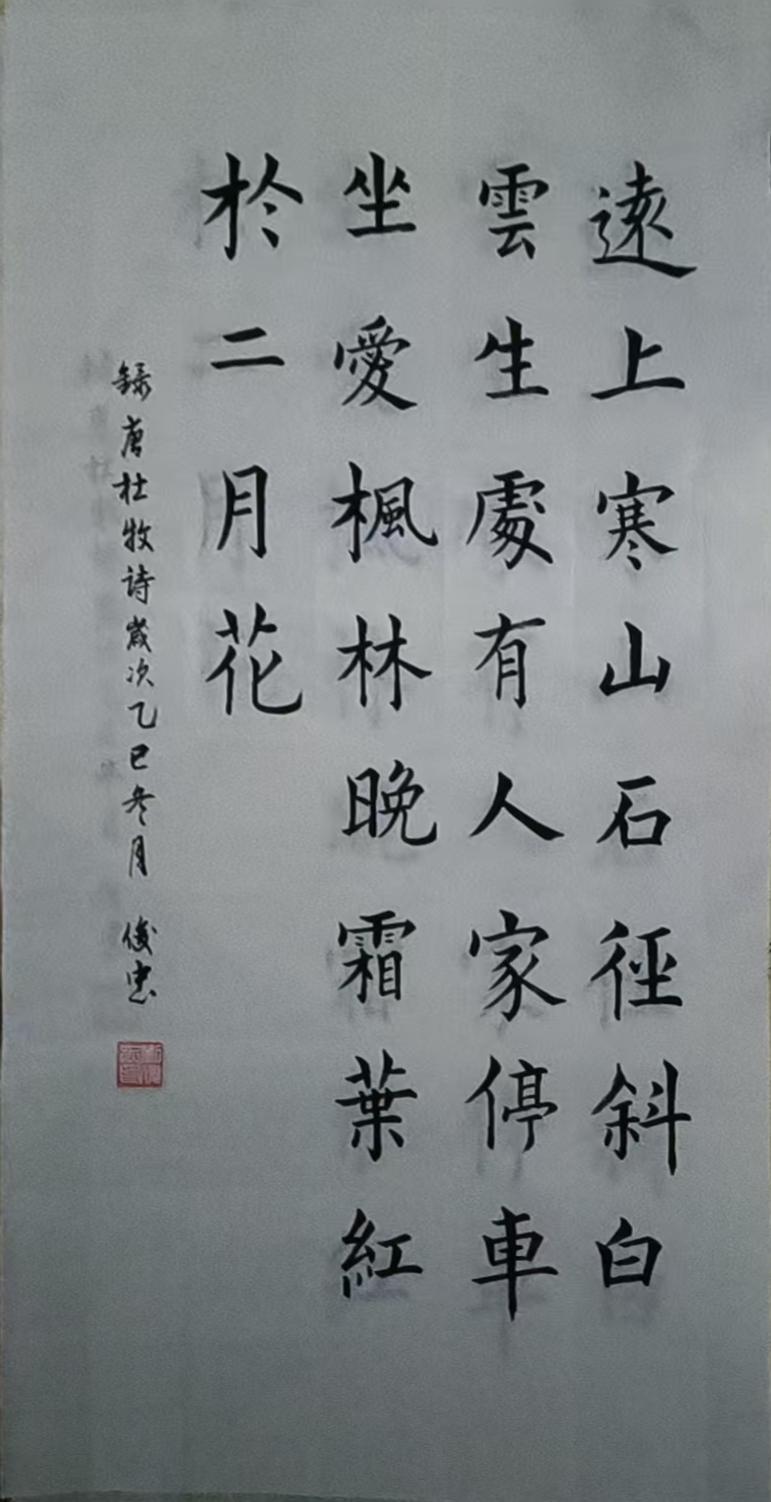 遠上寒山石徑斜白
雲生處有人家停車
坐愛楓林晚霜葉紅
於二月花
錄唐杜牧詩歲次乙巳冬月 俊忠